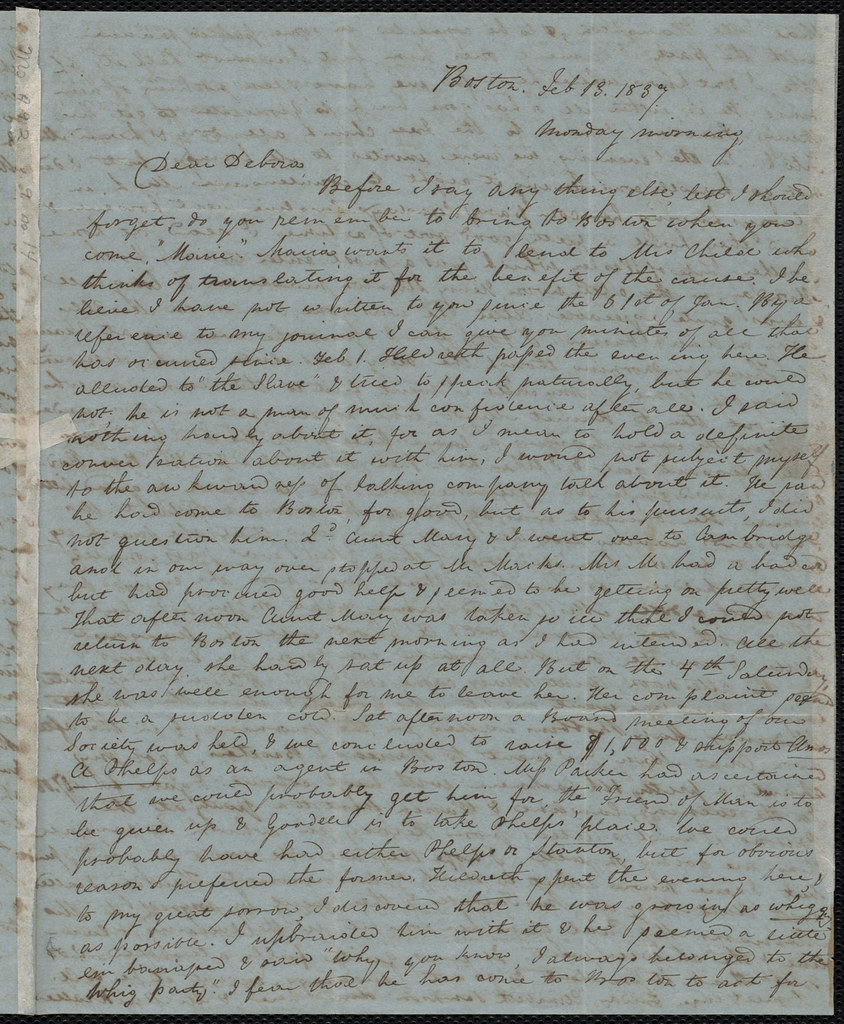 Boston. Feb 13. 1837
Monday morning,
Dear Debora,
Before I say any thing else, lest I should
forget, do you remember to bring to Boston when you
come, "Marie" Maria wants it to lend to Mrs Child who
thinks of translating it for the benefit of the cause. I be-
lieve I have not written to you since the 31st of Jan. By a
reference to my journal I can give you minutes of all that
has occurred since. Feb 1. Hildreth passed the evening here. He
alluded to "the Slave" & tried to speak naturally, but he could
not, he is not a man of much confidence after all. I said
nothing hardly about it, for as I mean to hold a definite
conversation about it with him, I would not subject myself
to the awkwardness of talking company talk about it. He said
he had come to Boston, for good, but as to his pursuits, I did
not question him. 2d Aunt Mary & I went over to Cambridge
and in our way over stopped at Mr Macks. Mrs M had a bad
but had procured good help & seemed to be getting on pretty well
That afternoon Aunt Mary was taken so ill that I could not
return to Boston the next morning as I had intended. All the
next day she hardly sat up at all But on the 4th Saturday,
she was well enough for me to leave her. Her complaint seemed
to be a sudden cold. Sat afternoon a Board meeting of our
Society was held, & we concluded to raise $1,000 & support Amos
A Phelps as an agent in Boston. Miss Parker had ascertained
that we could probably get him, for the "Friend of Man" is to
be given up & Goodell is to take Phelps' place. We could
probably have had either Phelps or Stanton, but for obvious
reason I preferred the former. Hildreth spent the evening here, &
to my great sorrow, I discovered that he was growing as whiggy
as possible. I upbraided him with it & he seemed a little
embarrassed & said "Why you know, I always belonged to the
Whig party". I fear that he has come to Boston to act for